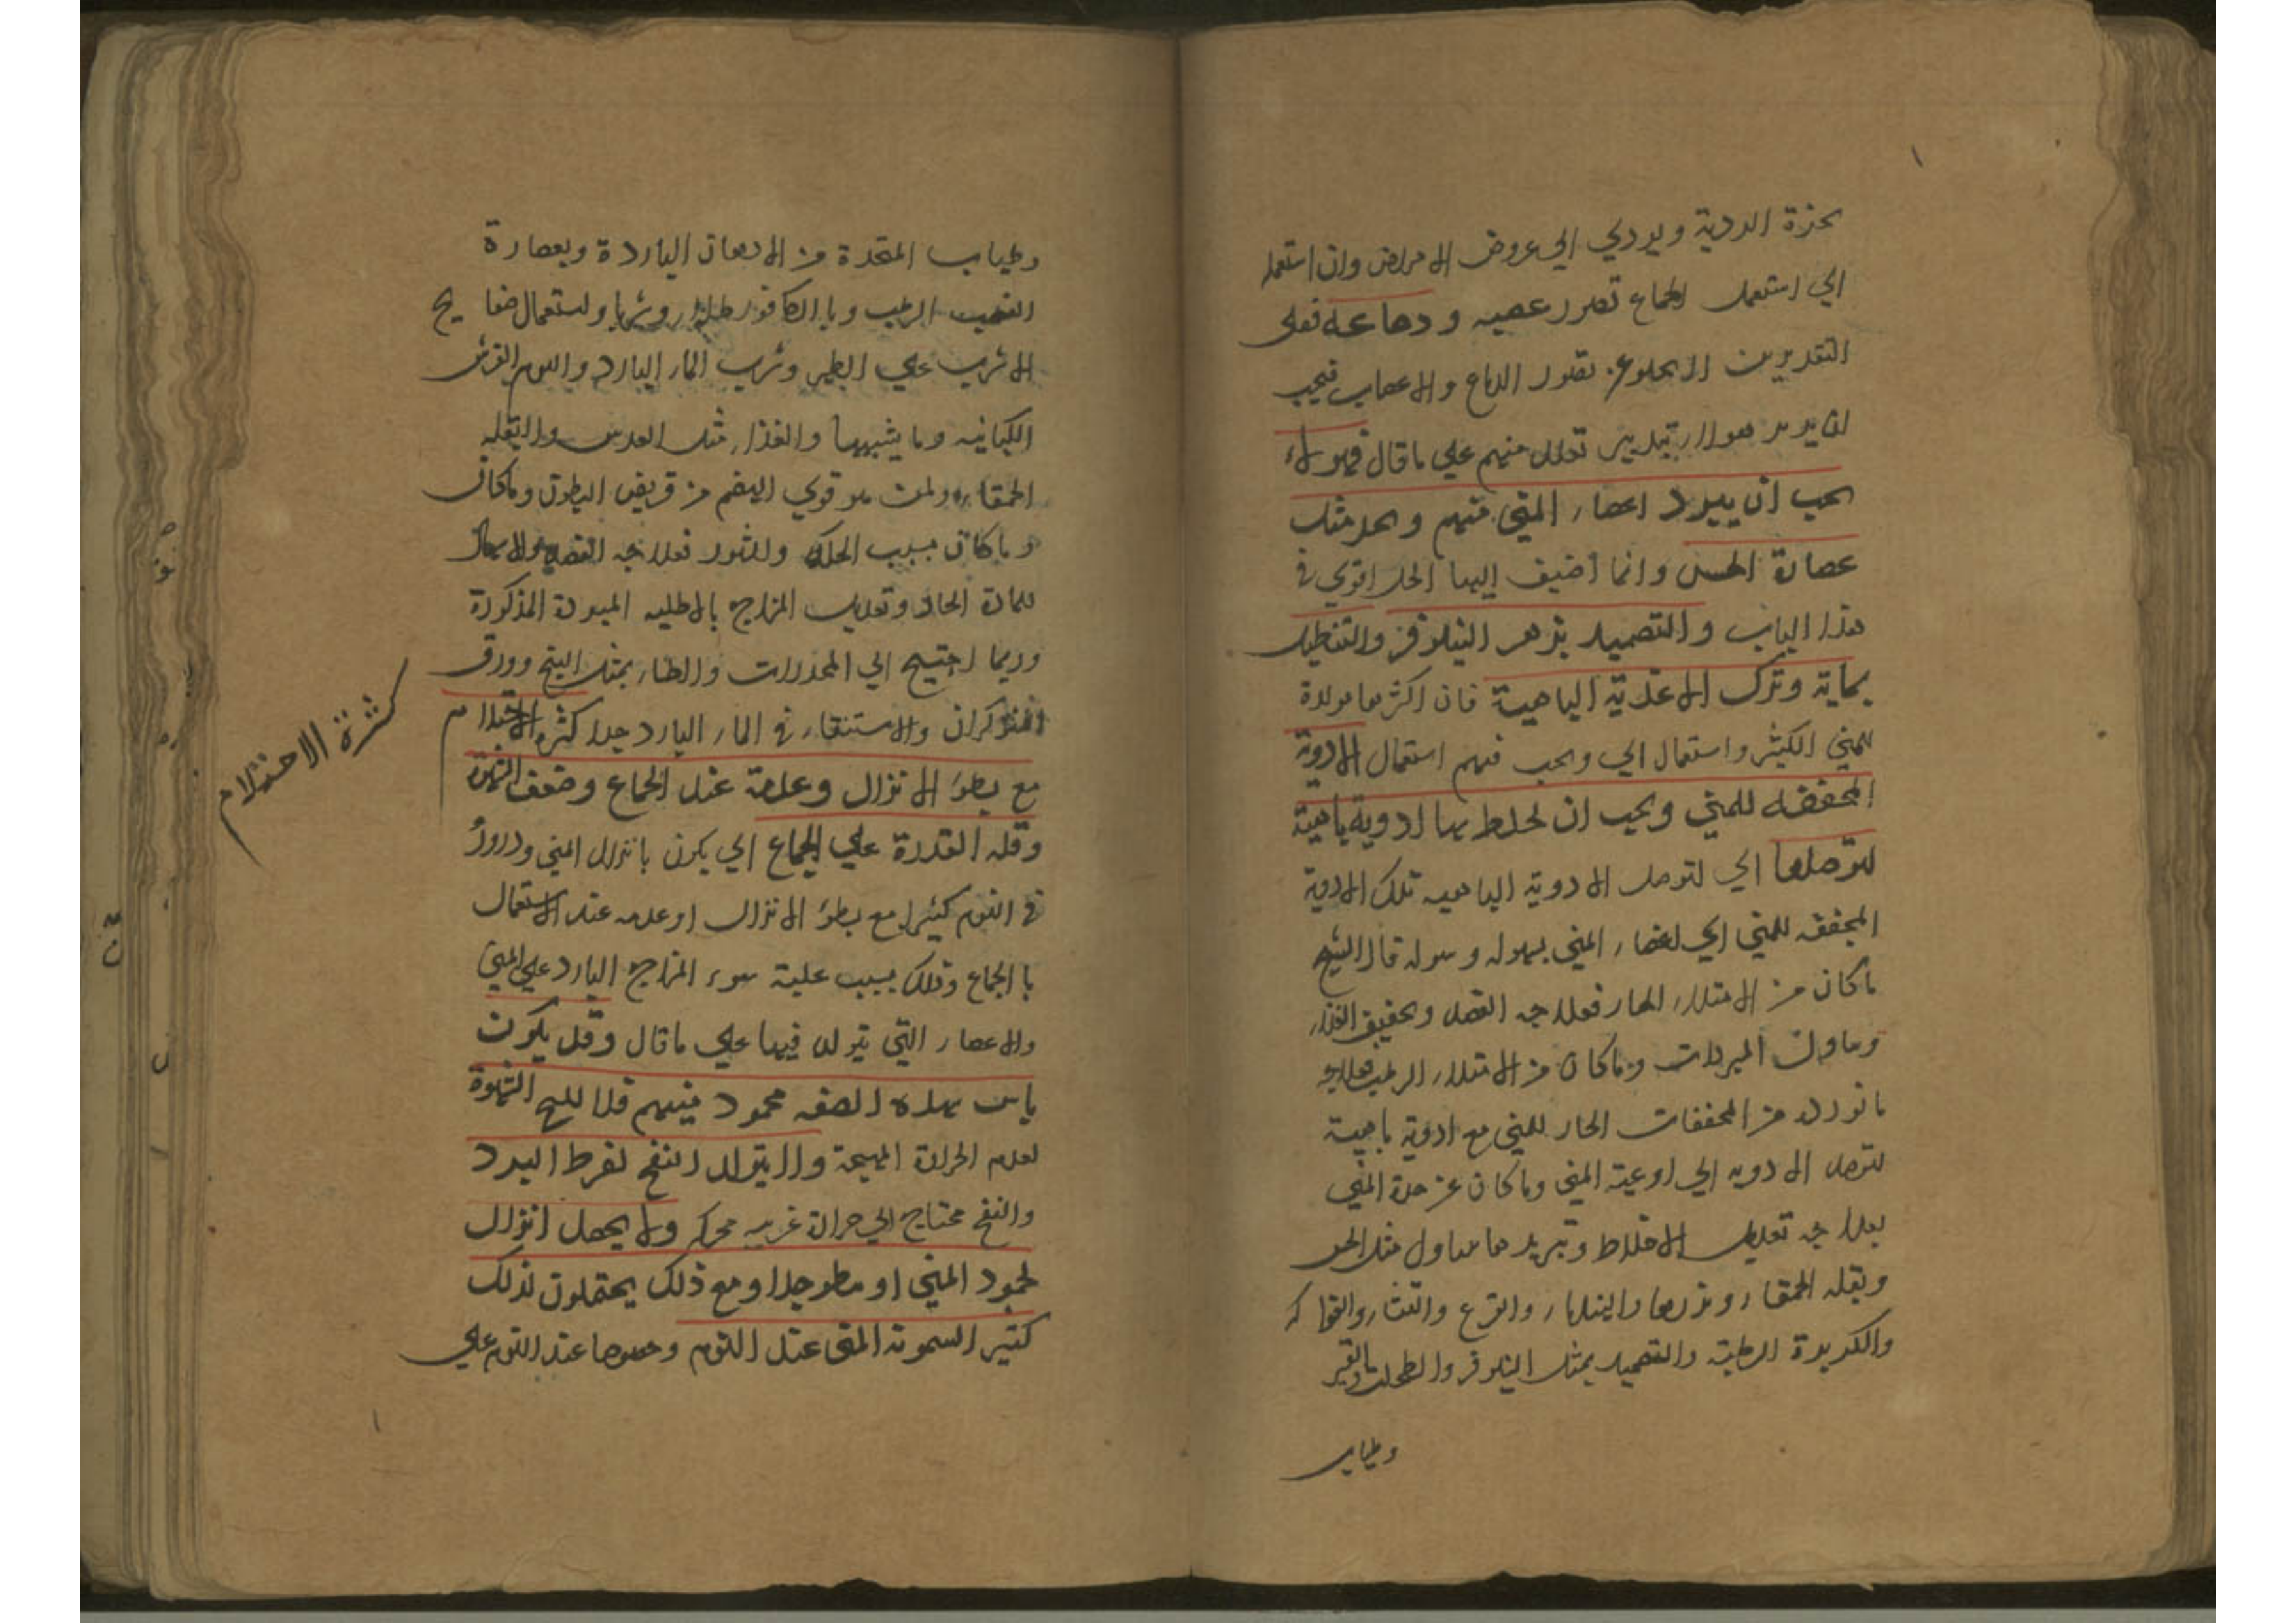 بحزة الردية ويودي الي عروض الامراض وان استعمله
اي استعمل الجماع تضرر عصبه ودماغه فعلى
التقديرين لا يخلو عن تضرر الدماغ والاعصاب فيجب
ان يدبر هولاء بتدبير تعلل منيهم علي ما قال فهولاء
يجب ان يبرد اعضاء المني منهم وبحد مثل
عصارة الخس وانما اضيف اليها الخل اقوي في
هذا الباب والتضميد بزهر النيلوفر والتنطيل
بماية وترك الاغذية الباهية فان اكثرها مولدة
للمني الكثير واستعمال اي ويجب فيهم استعمال الادوية
المجففه للمني ويجب ان يخلط بها ادوية باهية
لتوصلها اي لتوصل الادوية الباهيه تلك الادوية
المجففه للمني اي اعضاء المني بسهوله قال الشيخ
ما كان من الامتلاء الحار فعلاجه الفصد وتخفيف الغذاء
وتناول المبردات وما كان من الامتلاء الرطب فعلاجه
ما نورد من المجففات الحار للمني مع ادوية باهية
لتوصل الادويه الي اوعية المني وما كان عن حدة المني
بعلاجه تعديل الاخلاط وتبريدها بتناول مثل الخس
وبقله الحمقاء وبزرها والهندباء والقرع والقثاء والفواكه
والكزبرة الرطبة والتضميد بمثل النيلوفر والطحلب
وطياب
وطياب المتخذة من الادهان الباردة وبعصارة
القضيب الرطب وبالكافور طلاء وشربا واستعمال صفايح
الاسرب علي الظهر وشرب الماء البارد والنوم الفرش
الكتانيه وما يشبهها والغذاء مثل العدس والبقله
الحمقاء ولمن هو قوي الهضم من قريض البطون وما كان
وما كان بسبب الحكه والبثور فعلاجه الفصد والاسهال
للمادة الحارة وتعديل المزاج بالاطليه المبردة المذكورة
وربما احتيج الي المخدرات والطلاء بمثل البنج وورق
الشوكران والاستنقاء في الماء البارد جدا كثرة الاحتلام
مع بطؤ الانزال وعدمه عند الجماع وضعف الشهوة
وقله القدرة علي الجماع اي يكون بانزال المني ودروره
في النوم كثيرا مع بطؤ الانزال او عدمه عند الاستعمال
با الجماع وذلك بسبب غلبة سوء المزاج البارد علي المني
والاعضاء التي يتولد فيها علي ما قال وقد يكون
ناس بهذه الصفه جمود منيهم فلا تهيج الشهوة
لعدم الحرارة المهيجة ولا يتولد النفخ لفرط البرد
والنفخ محتاج الي حرارة غريبه محركه ولا يحصل انزال
لجمود المني او بطؤ جدا ومع ذلك يحتلمون لذلك
كثير السخونة المني عند النوم وخصوصا عند النوم علي
كثرة الاحتلام